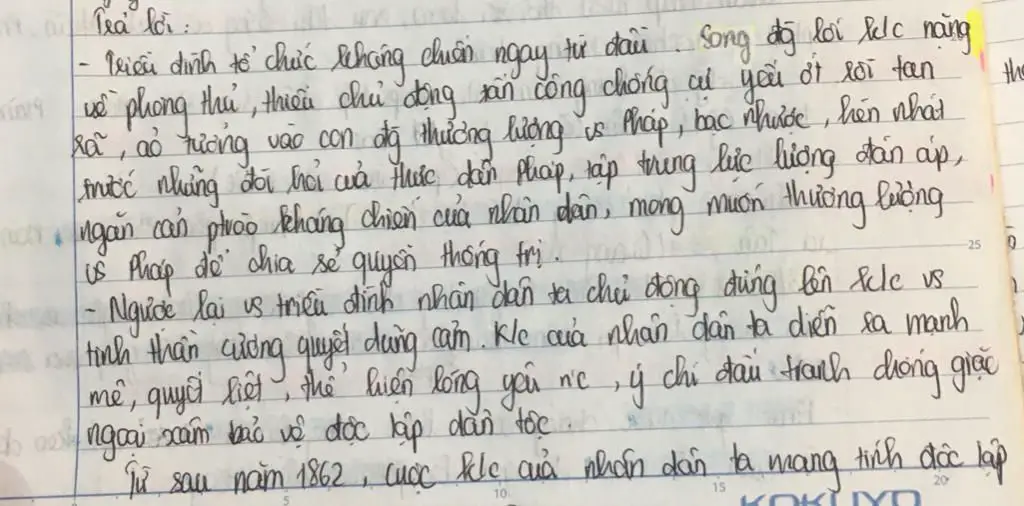 Trả lời:
- Triều đình tổ chức kháng chiến ngay từ đầu song đg lối k/c nặng
về phòng thủ, thiếu chủ động tấn công chống cự yếu ớt rồi tan
rã, ảo tưởng vào con đg thương lượng vs Pháp, bạc nhược, hèn nhát
trước những đòi hỏi của thực dân Pháp, tập trung lực lượng đàn áp,
ngăn cản ptrào kháng chiến của nhân dân, mong muốn thương lượng
vs Pháp để chia sẻ quyền thống trị.
- Ngược lại vs triều đình nhân dân ta chủ động đứng lên k/c vs
tinh thần cương quyết dũng cảm K/c của nhân dân ta diễn ra mạnh
mẽ, quyết liệt, thể hiện lòng yêu nc, ý chí đấu tranh chống giặc
ngoại xâm bảo vệ độc lập dân tộc.
Từ sau năm 1862, cuộc k/c của nhân dân ta mang tính độc lập
5 10 15 20 25
KOKUYO